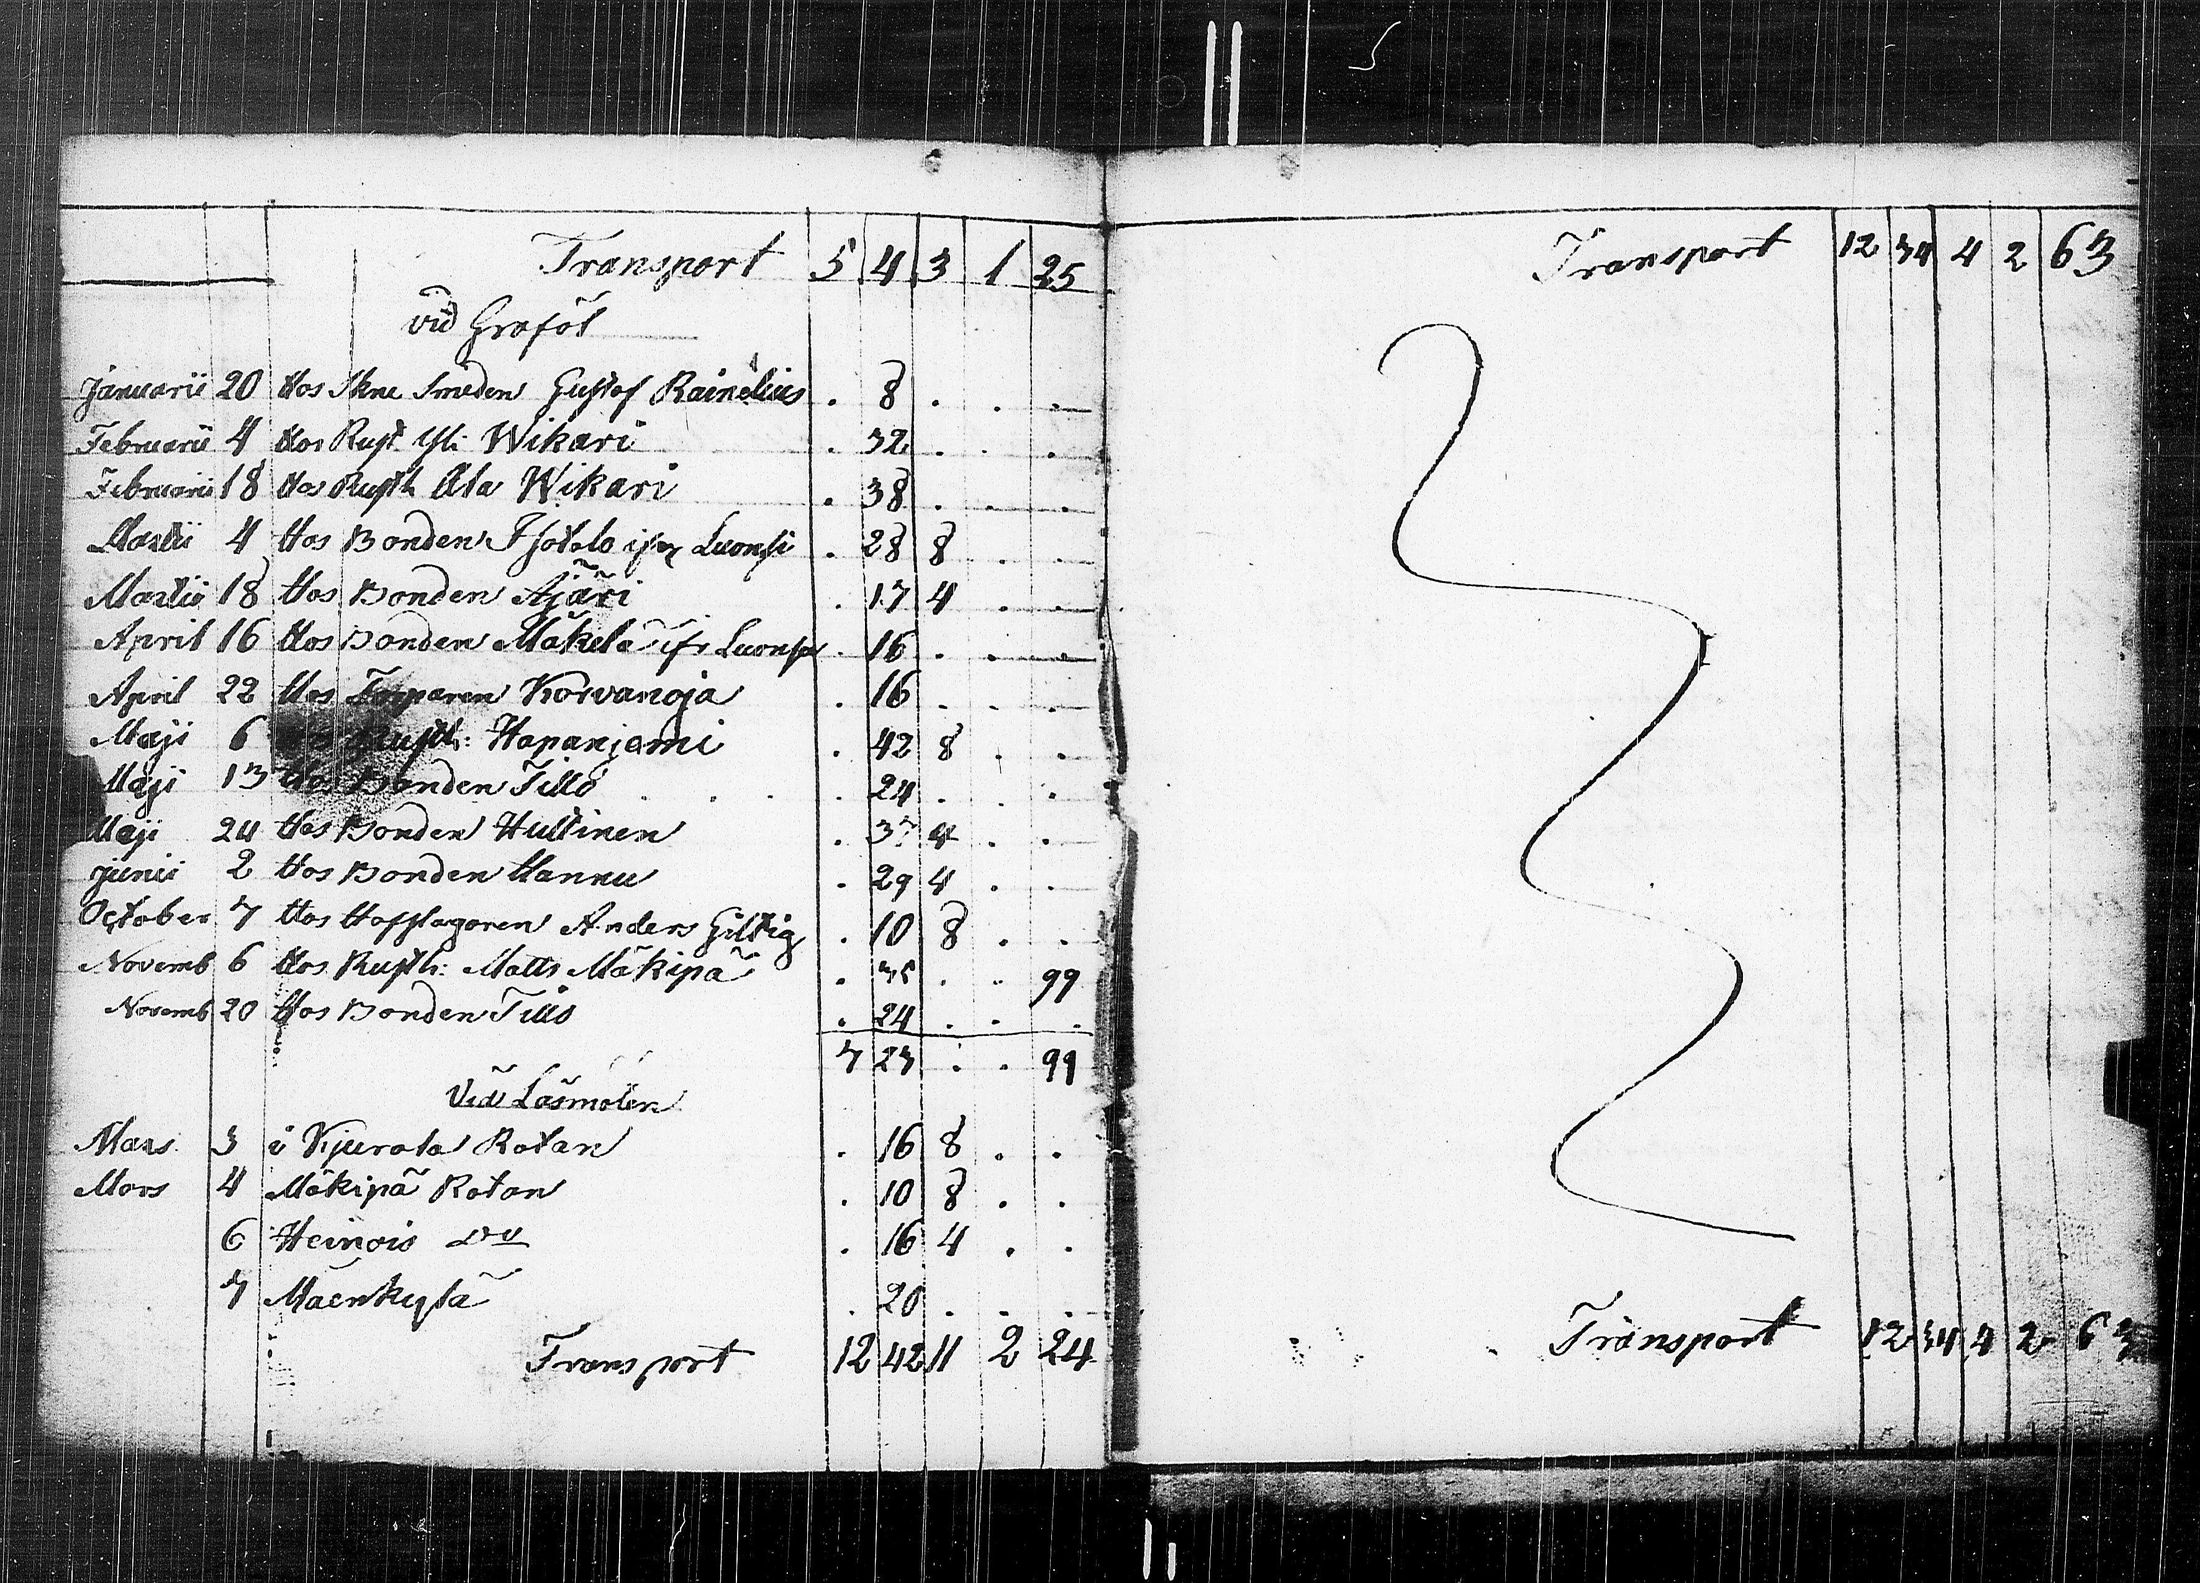 Transport 5 4 3 1 25
vid Graföl
Januarii 20 Hos Skne Smeden Gustof Rainelius . 8 . . .
Februarii 4 Hos Rust. Yli Wikari . 32 . . .
Februarii 18 Hos Rusth Ala Wikari . 38 . . .
Martii 4 Hos Bonden Isotalo ifr Luonsi . 28 8 . .
Martii 18 Hos Bonden Äjäri . 17 4 . .
April 16 Hos Bonden Mäkelä ifr Luonsi . 16 . . .
April 22 Hos Torparen Korvanoja . 16 . . .
Maji 6 Rusth: Hapanjemi . 42 8 . .
Maji 13 Hos Bonden Tillo . 24 . . .
Maji 24 Hos Bonden Huttinen . 37 4 . .
Junii 2 Hos Bonden Hannu . 29 4 . .
October 7 Hos Hofslagaren Anders Giltig . 10 8 . .
Novemb 6 Hos Rusth: Matts Mäkipä . 35 . . 99
Novemb 20 Hos Bonden Tillo . 24 . . .
7 23 . . 99
Vid Läsmöten
Mars 3 i Kjurala Rotan . 16 8 . .
Mars 4 Mäkipä Rotan . 10 8 . .
6 Heinois do . 16 4 . .
7 Mäenkylä . 20 . . .
Transport 12 42 11 2 24
Transport 12 34 4 2 63
Transport 12 34 4 2 63